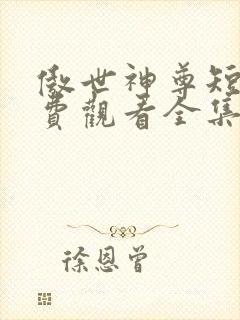 傲世神尊短
費觀看全集
徐恩曾